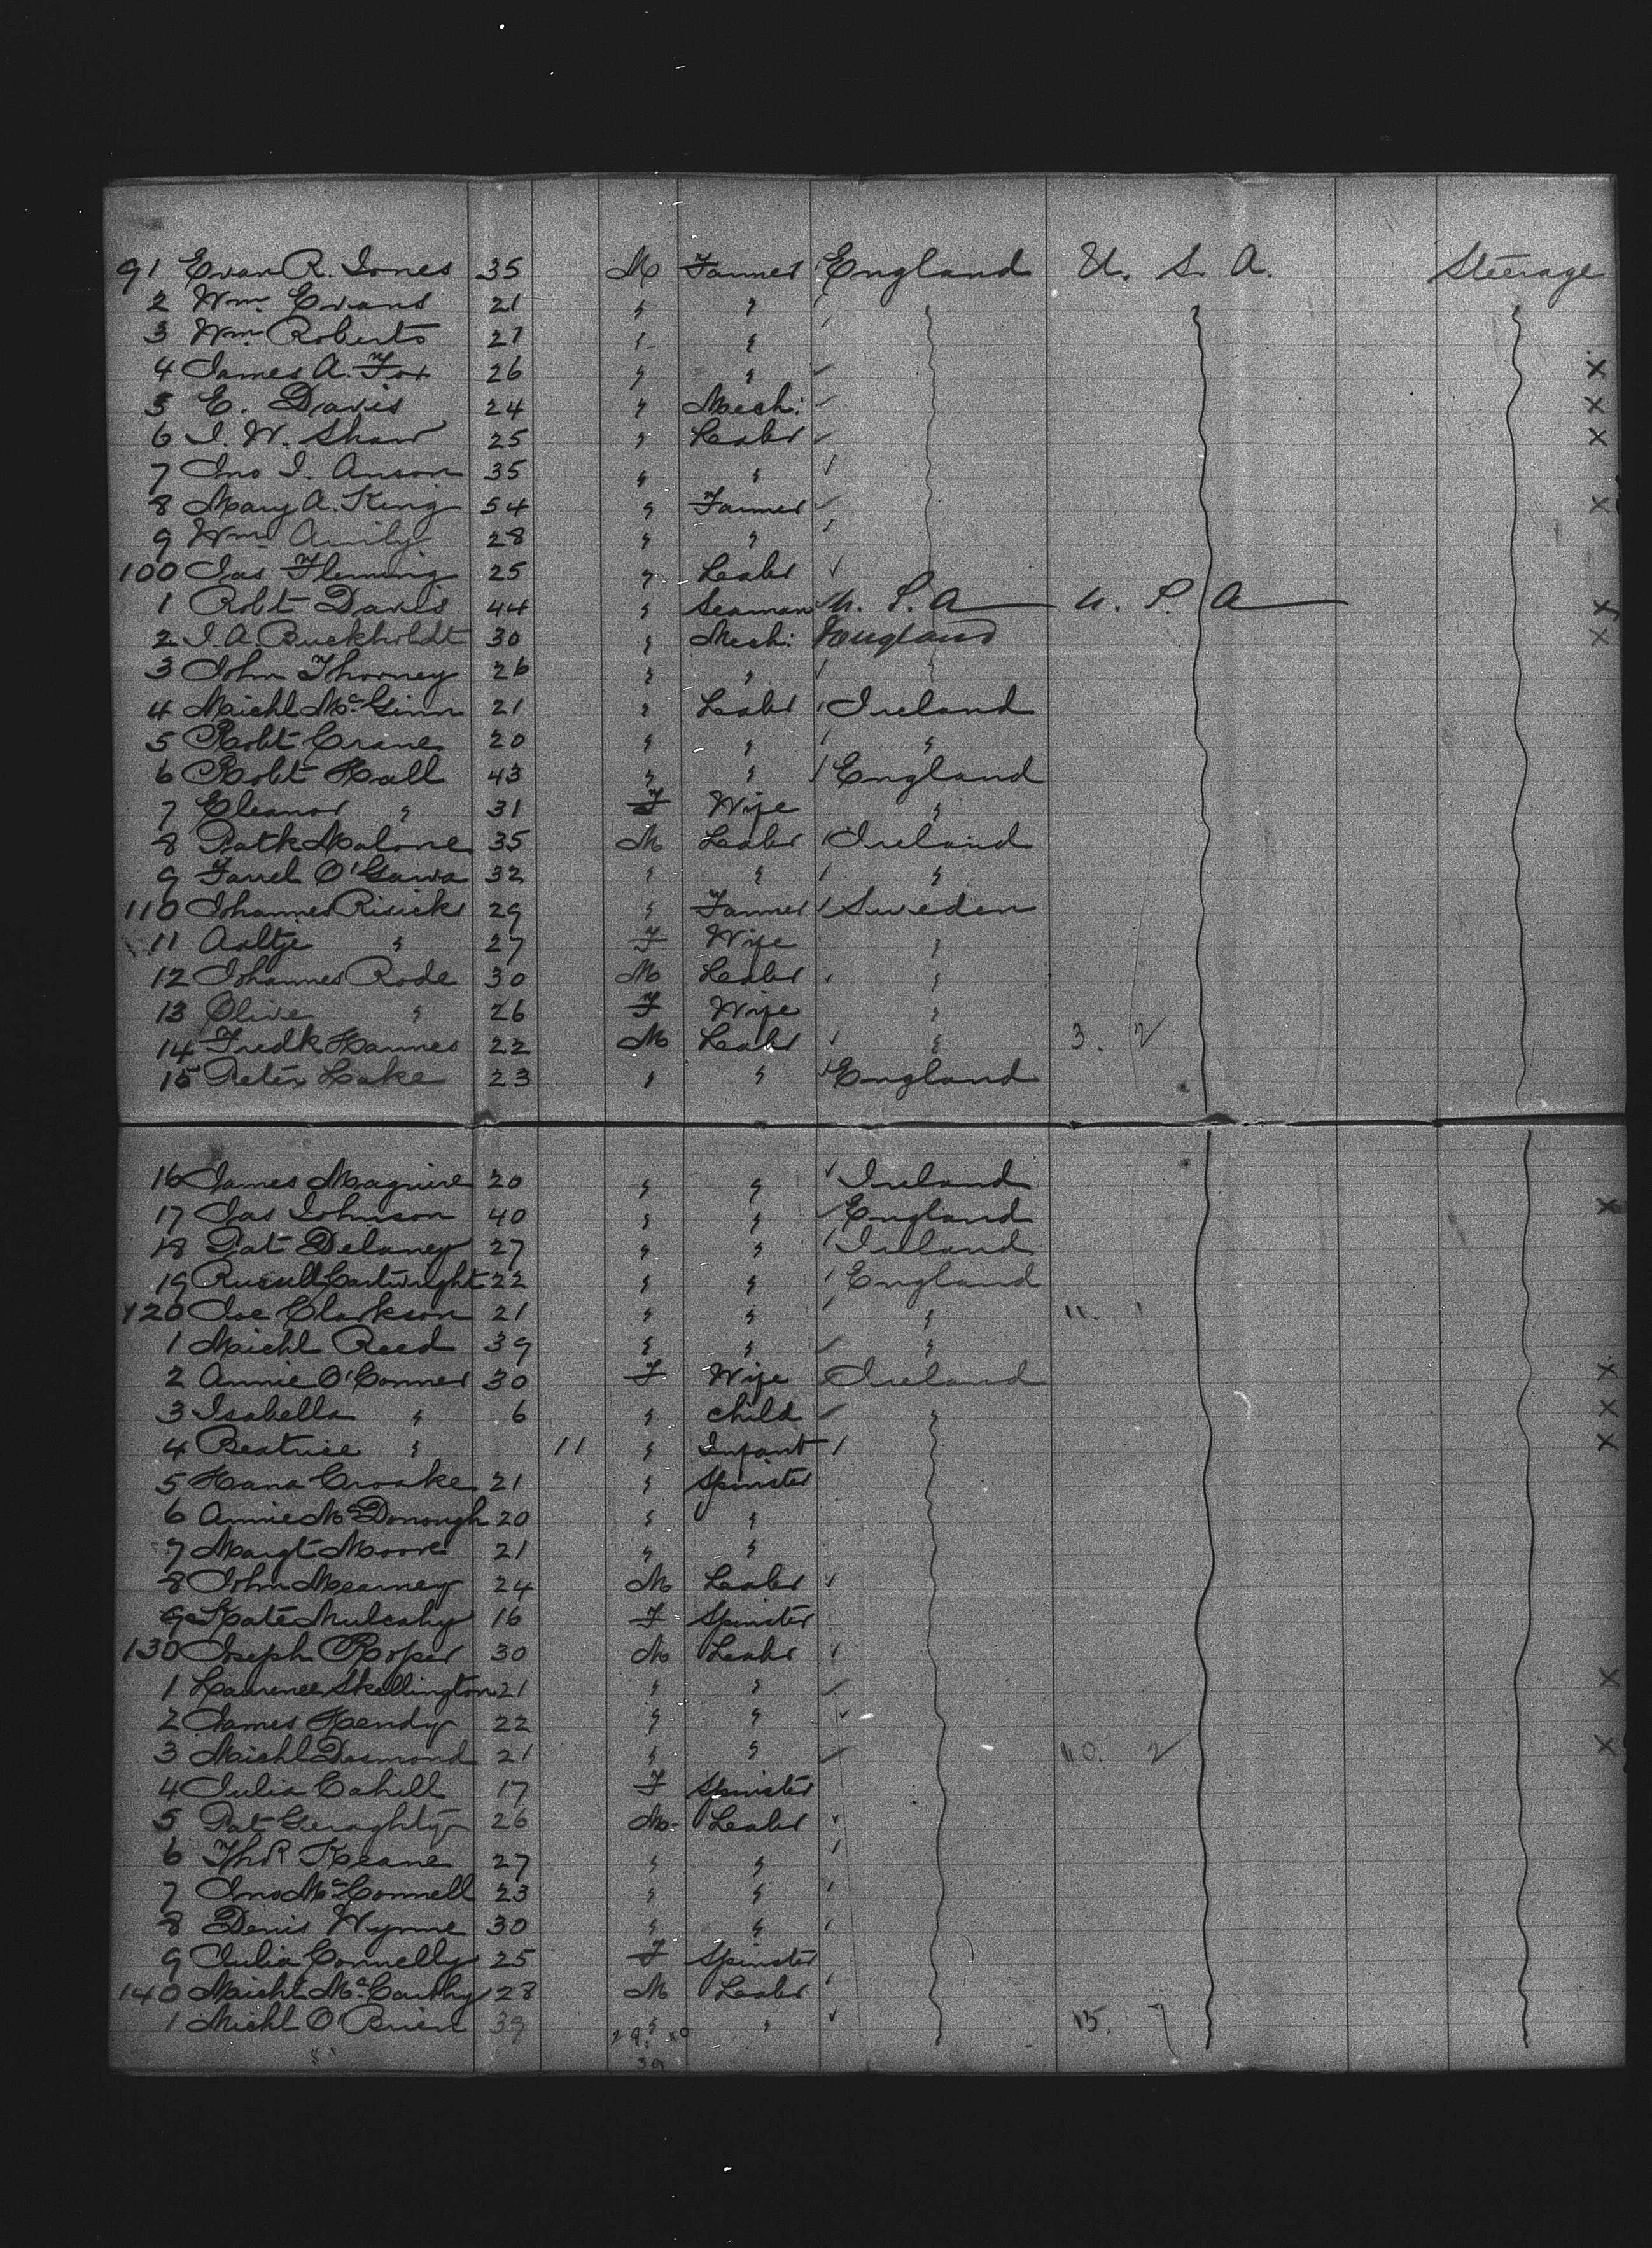 91 Evan R. Jones 35 M Farmer England U. S. A. Steerage
2 Wm Evans 21 " "
3 Wm Roberts 21 " "
4 James A. Fox 26 " " X
5 E. Davis 24 " Mech: X
6 J. W. Shaw 25 " Labr X
7 Jno J. Anson 35 " "
8 Mary A. King 54 " Farmer X
9 Wm 28 " "
100 Jas Fleming 25 " Labr
1 Robt Davis 44 " Seaman U. S. A U. S. A X
2 J. A. Buckholdt 30 " Mech: England X
3 John Thorney 26 " " "
4 Michl McGinn 21 " Labr Ireland
5 Robt Crane 20 " " "
6 Robt Hall 43 " " England
7 Eleanor " 31 F Wife "
8 Patk Malone 35 M Labr Ireland
9 Farrel O'Gawa 32 " " "
110 Johannes 29 " Farmer Sweden
11 Aaltje " 27 F Wife "
12 Johannes Rode 30 M Labr "
13 Olive " 26 F Wife "
14 Fredk Hannes 22 M Labr " 3. 2
15 Peter Lake 23 " " England
16 James Maguire 20 " " Ireland
17 Jas Johnson 40 " " England X
18 Pat Delaney 27 " " Ireland
19 Russell Cartwright 22 " " England
120 Joe Clarkson 21 " " " 11. 1
1 Michl Reed 39 " " "
2 Annie O'Connor 30 F Wife Ireland X
3 Isabella " 6 " Child " X
4 Beatrice " 11 " Infant X
5 Hana Croake 21 " Spinster
6 Annie McDonough 20 " "
7 Margt Moore 21 " "
8 John Mearney 24 M Labr
9 Kate Mulcahy 16 F Spinster
130 Joseph Roper 30 M Labr
1 Laurence Skellington 21 " " X
2 James Hendy 22 " "
3 Michl Desmond 21 " " 110. 2 X
4 Julia Cahill 17 F Spinster
5 Pat Geraghty 26 M. Labr
6 Thos Keane 27 " "
7 Jno McConnell 23 " "
8 Denis Wynne 30 " "
9 Julia Connelly 25 F Spinster
140 Michl McCarthy 28 M Labr
1 Michl O'Brien 39 " " 15. 7